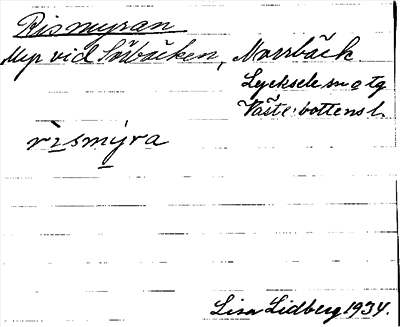 Rismyran
Myr vid Sörbäcken, Morrbäck
Lycksele sn o tg
Västerbottens l.
rìsmýra
Lisa Lidberg 1934.